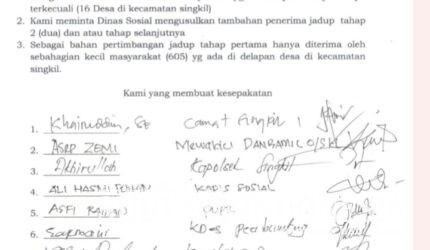 terkecuali (16 Desa di kecamatan singkil)
2. Kami meminta Dinas Sosial mengusulkan tambahan penerima jadup tahap
2 (dua) dan atau tahap selanjutnya
3. Sebagai bahan pertimbangan jadup tahap pertama hanya diterima oleh
sebahagian kecil masyarakat (605) yg ada di delapan desa di kecamatan
singkil.
Kami yang membuat kesepakatan
1. Khairuddin, SE Camat Singkil
2. ASRP ZEMI Mewakili DANRAMIL 01/SKL
3. Akhirulloh Kapolsek Singkil
4. ALI HASMI KADIS SOSIAL
5. ASFI PUPR
6. Sapmaini